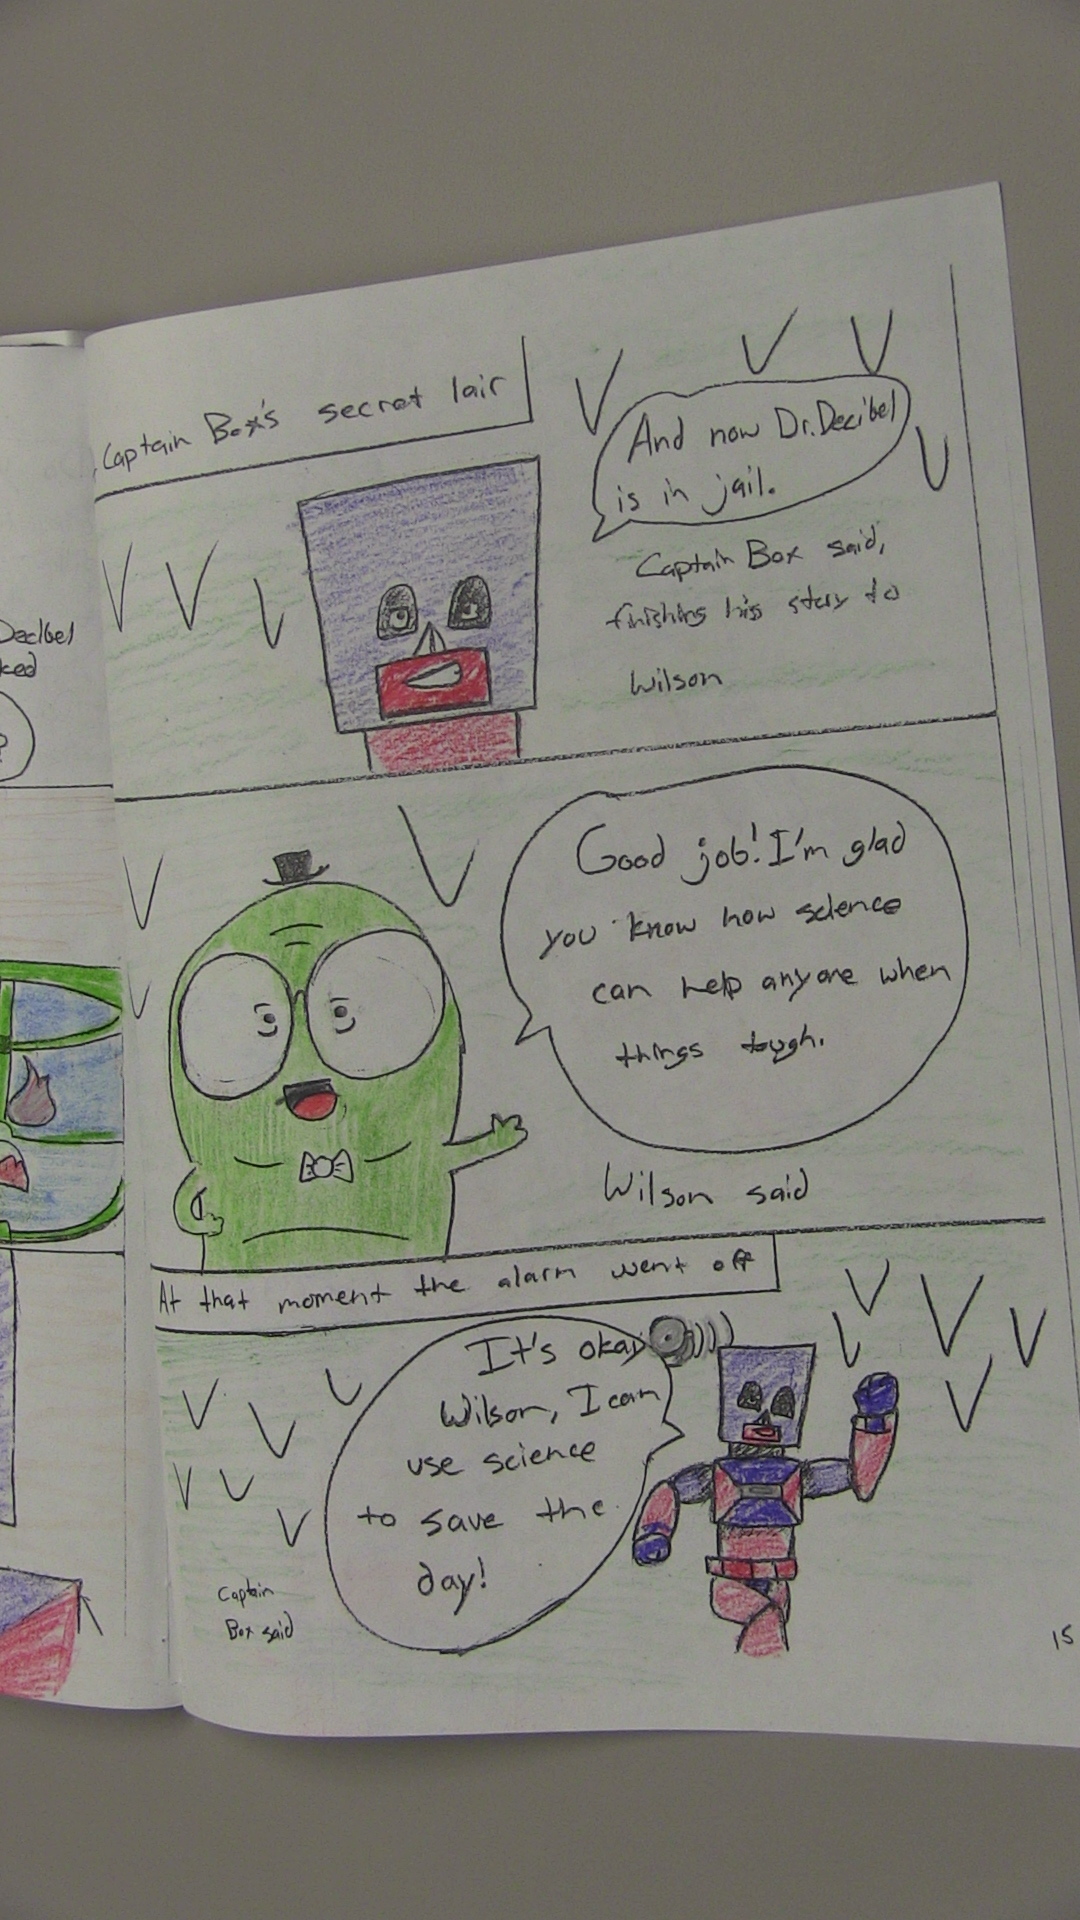 Decibel
ked
?
Captain Box's secret lair
And now Dr. Decibel
is in jail.
Captain Box said,
finishing his story to
Wilson
Good job! I'm glad
you know how science
can help anyone when
things tough.
Wilson said
At that moment the alarm went off
It's okay
Wilson, I can
use science
to save the
day!
Captain
Box said
15